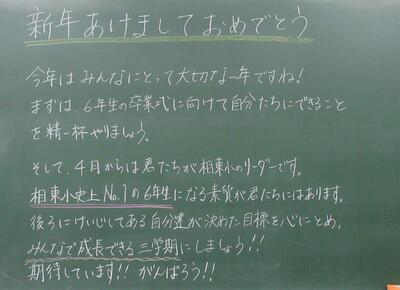 新年あけましておめでとう
今年はみんなにとって大切な一年ですね!
まずは、6年生の卒業式に向けて自分たちにできること
を精一杯やりましょう。
そして、4月からは君たちが相東小のリーダーです。
相東小史上No.1の6年生になる素質が君たちにはあります。
後ろにけいじしてある自分達が決めた目標を心にとめ、
みんなで成長できる三学期にしましょう!!
期待しています!! がんばろう!!